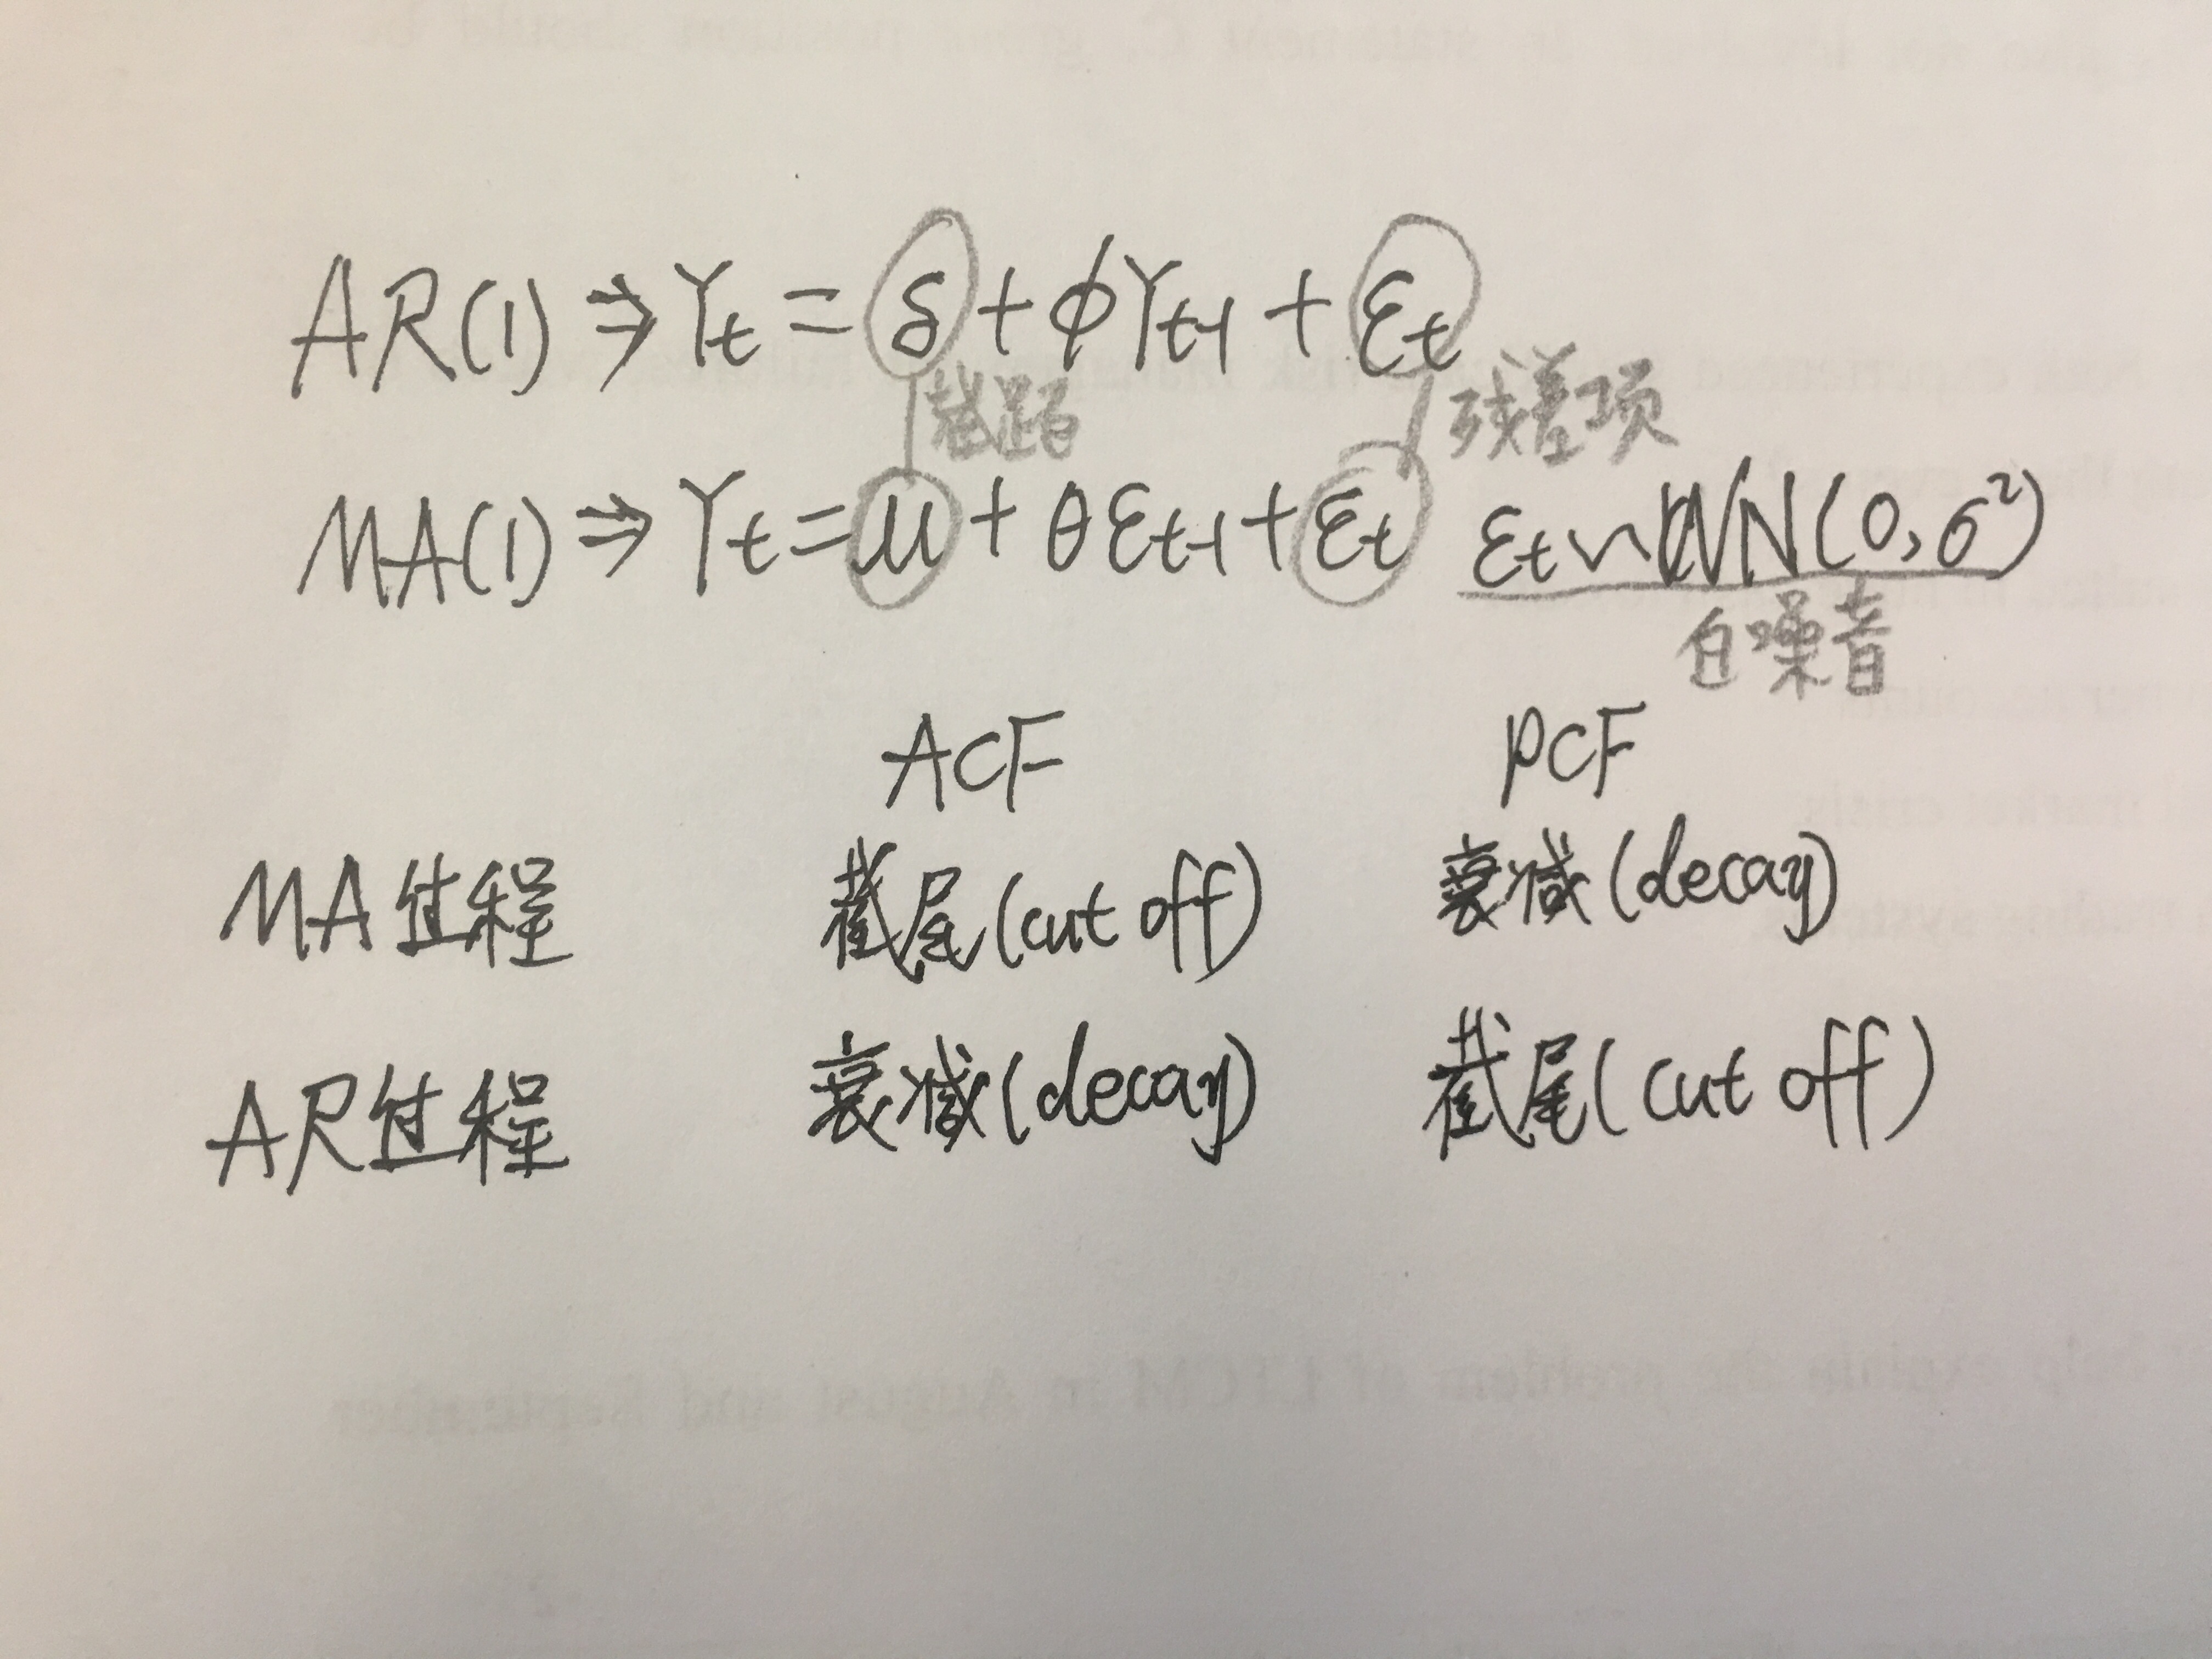 AR(1) ⇒ Yt = δ + ϕYt-1 + εt
截距 残差项
MA(1) ⇒ Yt = μ + θεt-1 + εt εt ~ WN(0, σ²)
白噪音
ACF PCF
MA过程 截尾(cut off) 衰减(decay)
AR过程 衰减(decay) 截尾(cut off)